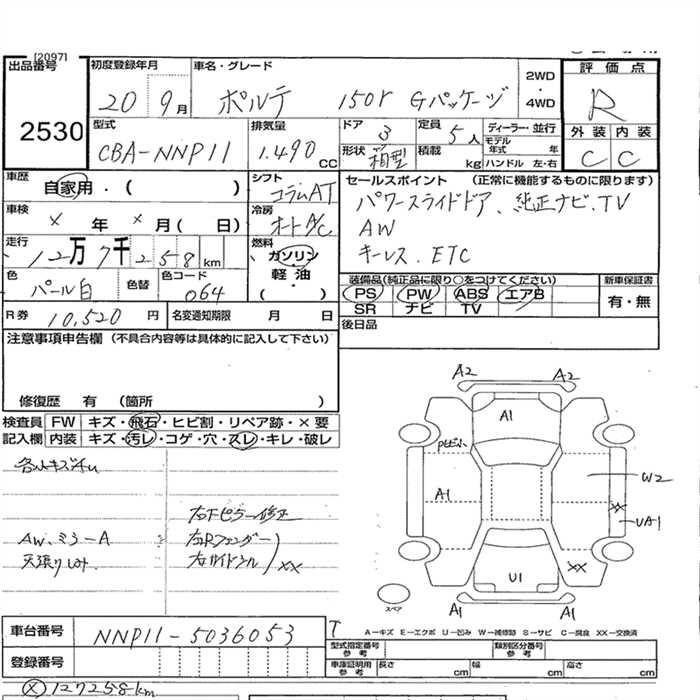 [2097]
出品番号
2530
初度登録年月
20 9月
車名・グレード
ポルテ 150r Gパッケージ
2WD
・
4WD
評価点
R
外装 内装
C C
型式
CBA-NNP11
排気量
1.490 CC
ドア 3
形状 箱型
定員 5人
積載 kg
ディーラー・並行
モデル年式 年
ハンドル 左・右
車歴
自家用・( )
シフト
コラムAT
セールスポイント (正常に機能するものに限ります)
パワースライドドア、純正ナビ、TV
AW
キーレス、ETC
車検
× 年 × 月( 日)
冷房
オートA/C
走行
12万7千258km
燃料
ガソリン
軽油
( )
色
パール白
色替
色コード
064
装備品(純正品に限り○をつけてください)
PS PW ABS エアB
SR ナビ TV
新車保証書
有・無
R券 10,520円
名変通知期限 月 日
後日品
注意事項申告欄 (不具合内容等は具体的に記入して下さい)
修復歴 有 (箇所 )
検査員
記入欄
FW キズ・飛石・ヒビ割・リペア跡・×要
内装 キズ・汚レ・コゲ・穴・スレ・キレ・破レ
AW、ミラーA
右Fピラー修正
右Rフェンダー
右サイドシル
XX
A2 A2
A1
A1
W2
XX
UA1
XX
U1
A1 A1
スペア
車台番号
NNP11-5036053
登録番号
A－キズ E－エクボ U－凹み W－補修跡 S－サビ C－腐食 XX－交換済
型式指定番号
参考
類別区分番号
参考
車庫証明用
参考
長さ cm 幅 cm 高さ cm
127258km